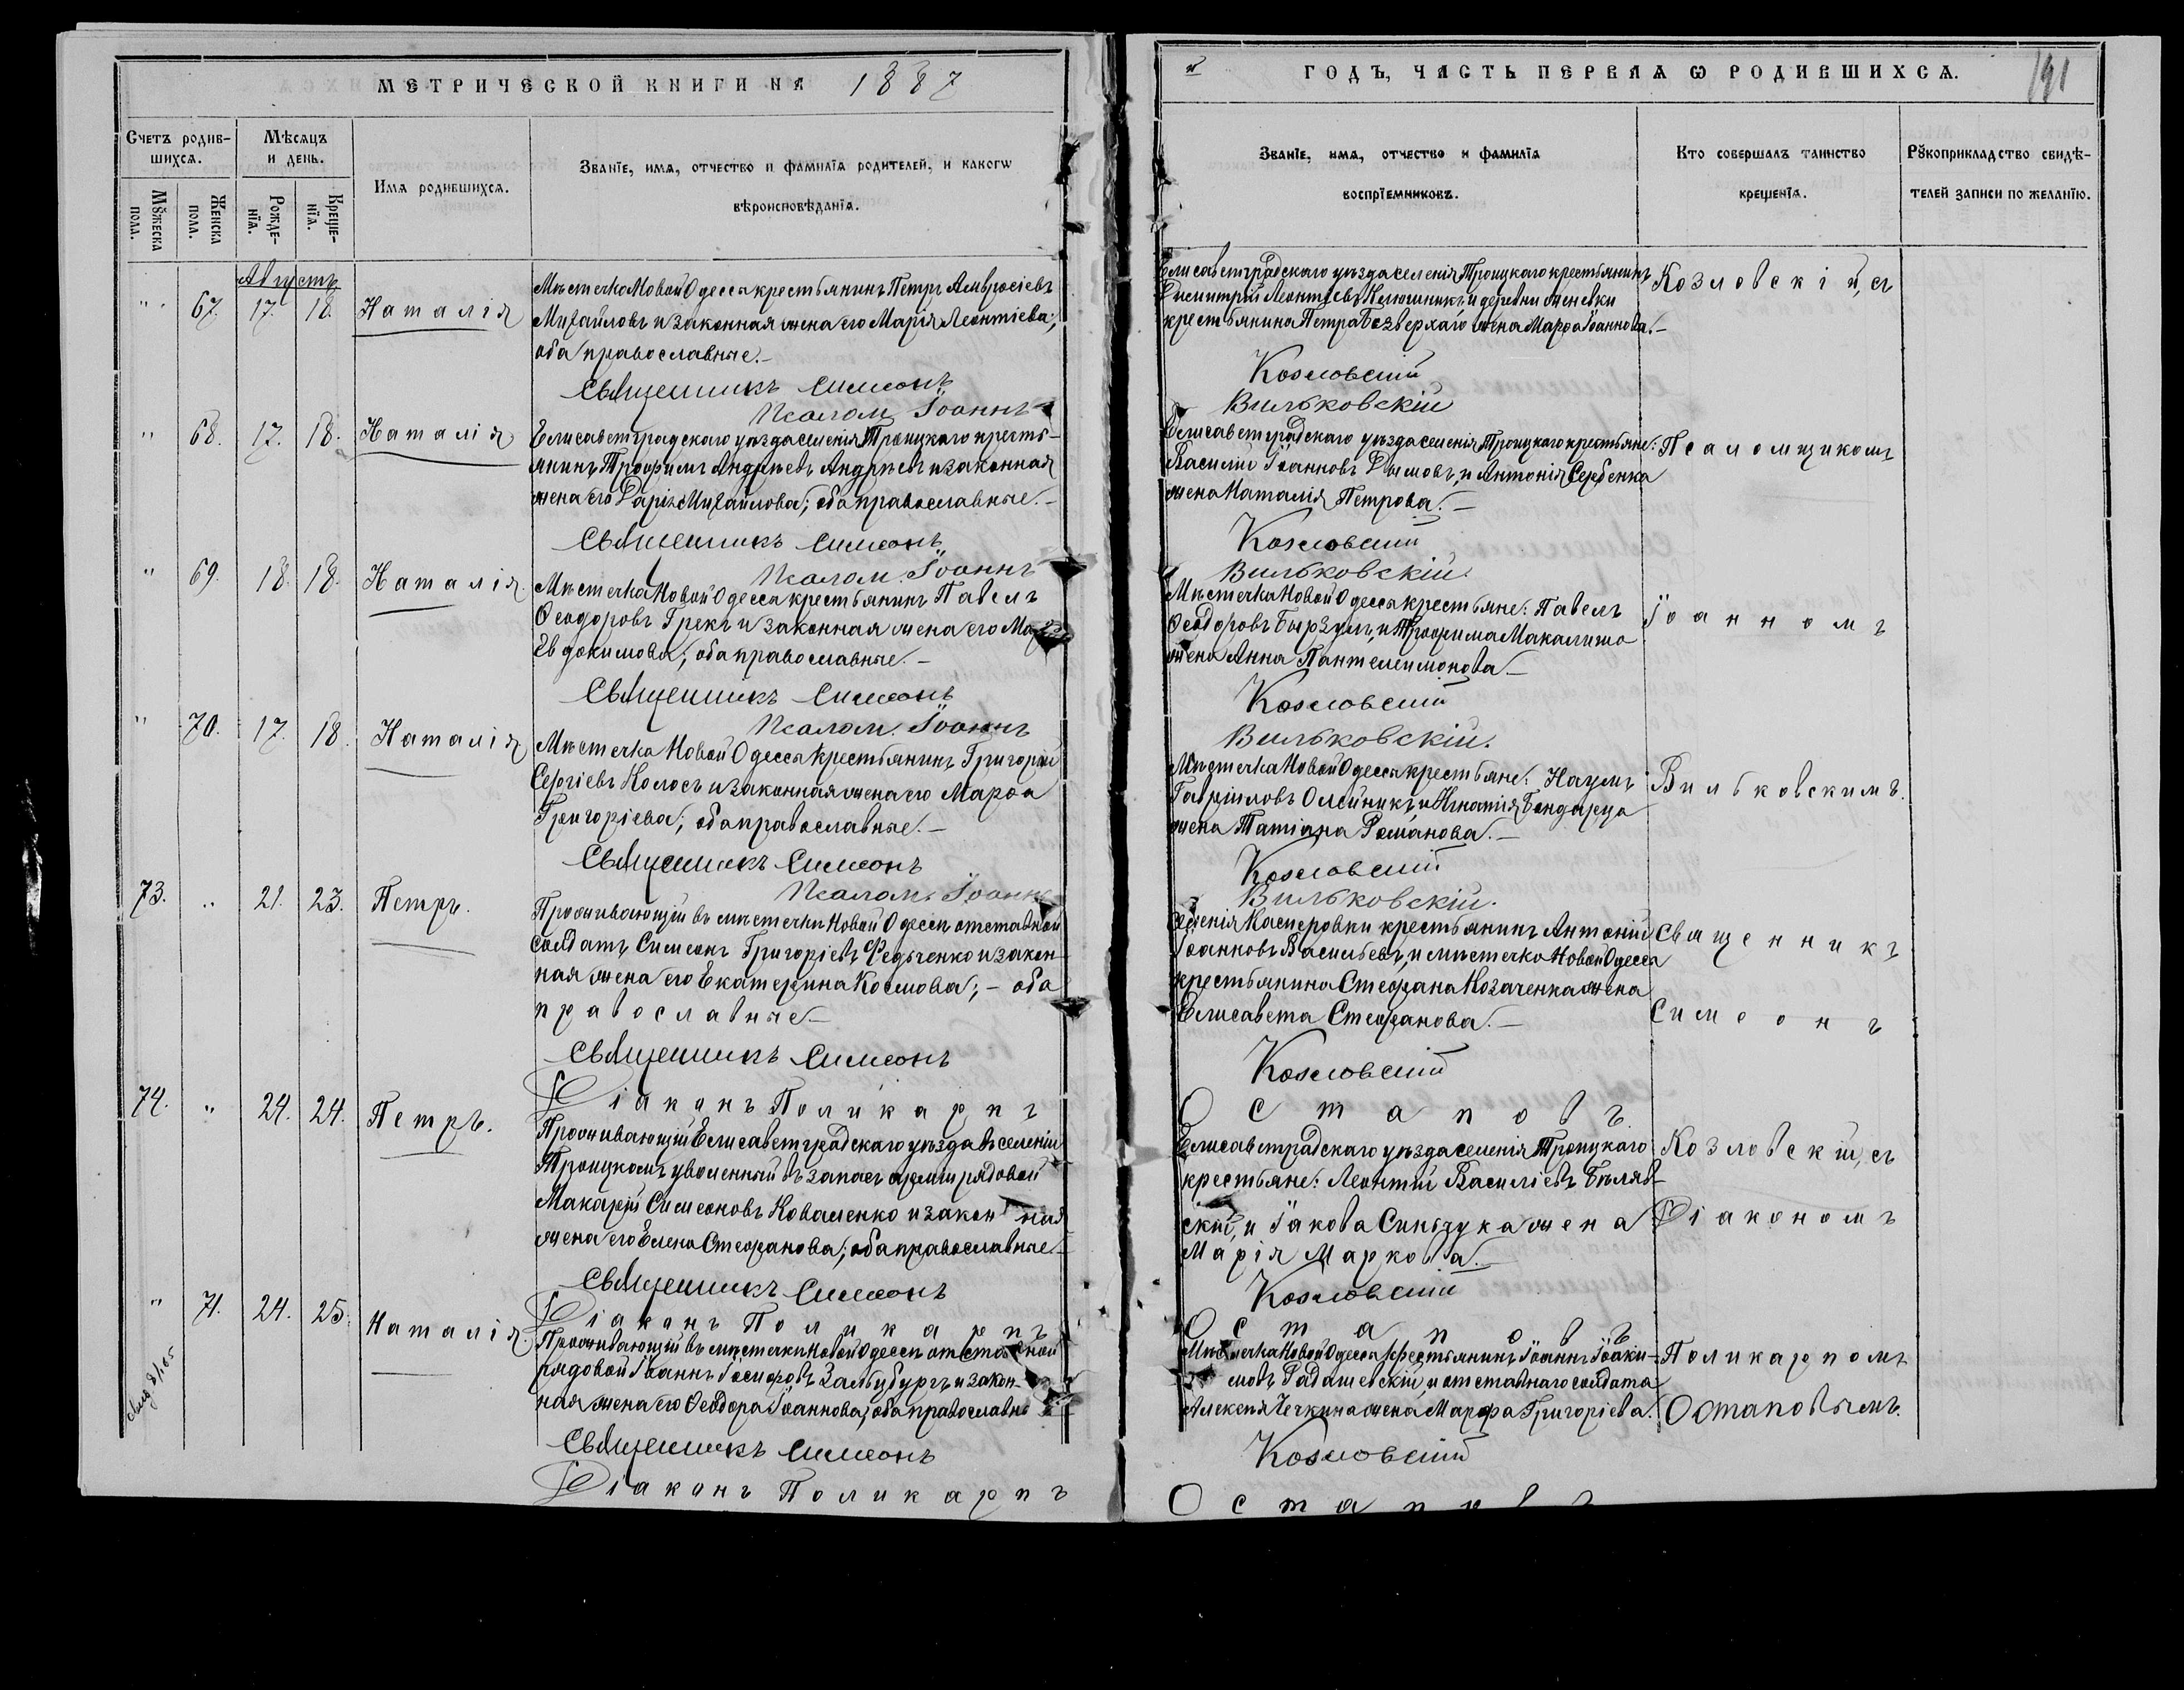 МЕТРИЧЕСКОЙ КНИГИ НА 1887
Счетъ родив-
шихся.
Мѣсяцъ
и день.
Имя родившихся.
Званіе, имя, отчество и фамилія родителей, и какогѡ
вѣроисповѣданія.
Мꙋжеска
пола.
Женска
пола.
Рожде-
нія.
Креще-
нія.
Августъ
" 67. 17. 18. Наталія
Мѣстечка Новой Одессы крестьянинъ Петръ Амвросіевъ
Михайловъ и законная жена его Марія Леонтіева;
оба православные.—
Священникъ Симеонъ
Псалом. Іоаннъ
" 68. 17. 18. Наталія
Елисаветградскаго уѣзда селенія Троицкаго кресть-
янинъ Трофимъ Андреевъ Андреевъ и законная
жена его Дарія Михайлова; оба православные.—
Священникъ Симеонъ
Псалом. Іоаннъ
" 69. 18. 18. Наталія.
Мѣстечка Новой Одессы крестьянинъ Павелъ
Ѳеодоровъ Грекъ и законная жена его
Евдокимова; оба православные.—
Священникъ Симеонъ
Псалом. Іоаннъ
" 70. 17. 18. Наталія
Мѣстечка Новой Одессы крестьянинъ Григорій
Сергіевъ Колосъ и законная жена его Марѳа
Григоріева; оба православные.—
Священникъ Симеонъ
Псалом. Іоаннъ
73. " 21. 23. Петръ.
Проживающій въ мѣстечкѣ Новой Одессѣ отставной
солдатъ Симеонъ Григоріевъ Федченко и закон-
ная жена его Екатерина Космова;— оба
православные—
Священникъ Симеонъ
Діаконъ Поликарпъ
74. " 24. 24. Петръ.
Проживающій Елисаветградскаго уѣзда въ селеніи
Троицкомъ уволенный въ запасъ арміи рядовой
Макарій Симеоновъ Коваленко и законная
жена его Елена Стефанова; оба православные—
Священникъ Симеонъ
Діаконъ Поликарпъ
" 71. 24. 25. Наталія.
Проживающій въ мѣстечкѣ Новой Одессѣ отставной
рядовой Іоаннъ Іосифовъ Зальцбургъ и закон-
ная жена его Ѳеодора Іоаннова; оба православн
Священникъ Симеонъ
Діаконъ Поликарпъ
ГОДЪ, ЧАСТЬ ПЕРВАЯ Ѡ РОДИВШИХСЯ.
191
Званіе, имя, отчество и фамилія
воспріемниковъ.
Кто совершалъ таинство
крещенія.
Рꙋкоприкладство свидѣ-
телей записи по желанію.
Елисаветградскаго уѣзда селенія Троицкаго крестьянинъ
Димитрій Леонтіевъ и деревни
крестьянина Петра Безверхаго жена Марѳа Іоаннова.—
Козловскій
Вильковскій
Козловскій, съ
Елисаветградскаго уѣзда селенія Троицкаго крестьяне:
Василій Іоанновъ Дымовъ, и Антонія Сербенка
жена Наталія Петрова.—
Козловскій
Вильковскій.
Псаломщикомъ
Мѣстечка Новой Одессы крестьяне: Павелъ
Ѳеодоровъ Бырзулъ, и Трофима
жена Анна Пантелеимонова—
Козловскій
Вильковскій.
Іоанномъ
Мѣстечка Новой Одессы крестьяне: Наумъ
Гавріиловъ Олейникъ, и Игнатія Бондарца
жена Татіана Романова.—
Козловскій
Вильковскій.
Вильковскимъ.
селенія Касперовки крестьянинъ Антоній
Іоанновъ Васильевъ, и мѣстечка Новой Одессы
крестьянина Стефана Козаченка жена
Елисавета Стефанова.—
Козловскій
Остаповъ.
Священникъ
Симеонъ
Елисаветградскаго уѣзда селенія Троицкаго
крестьяне: Леонтій Василіевъ Беляв-
скій, и Іакова Синьзука жена
Марія Маркова.—
Козловскій
Остаповъ
Козловскій, съ
Діакономъ
Мѣстечка Новой Одессы крестьянинъ Іоаннъ Іоаки-
мовъ Радашевскій, и отставнаго солдата
Алексея Чечкина жена Марфа Григоріева.
Козловскій
Остаповъ
Поликарпомъ
Остаповымъ.